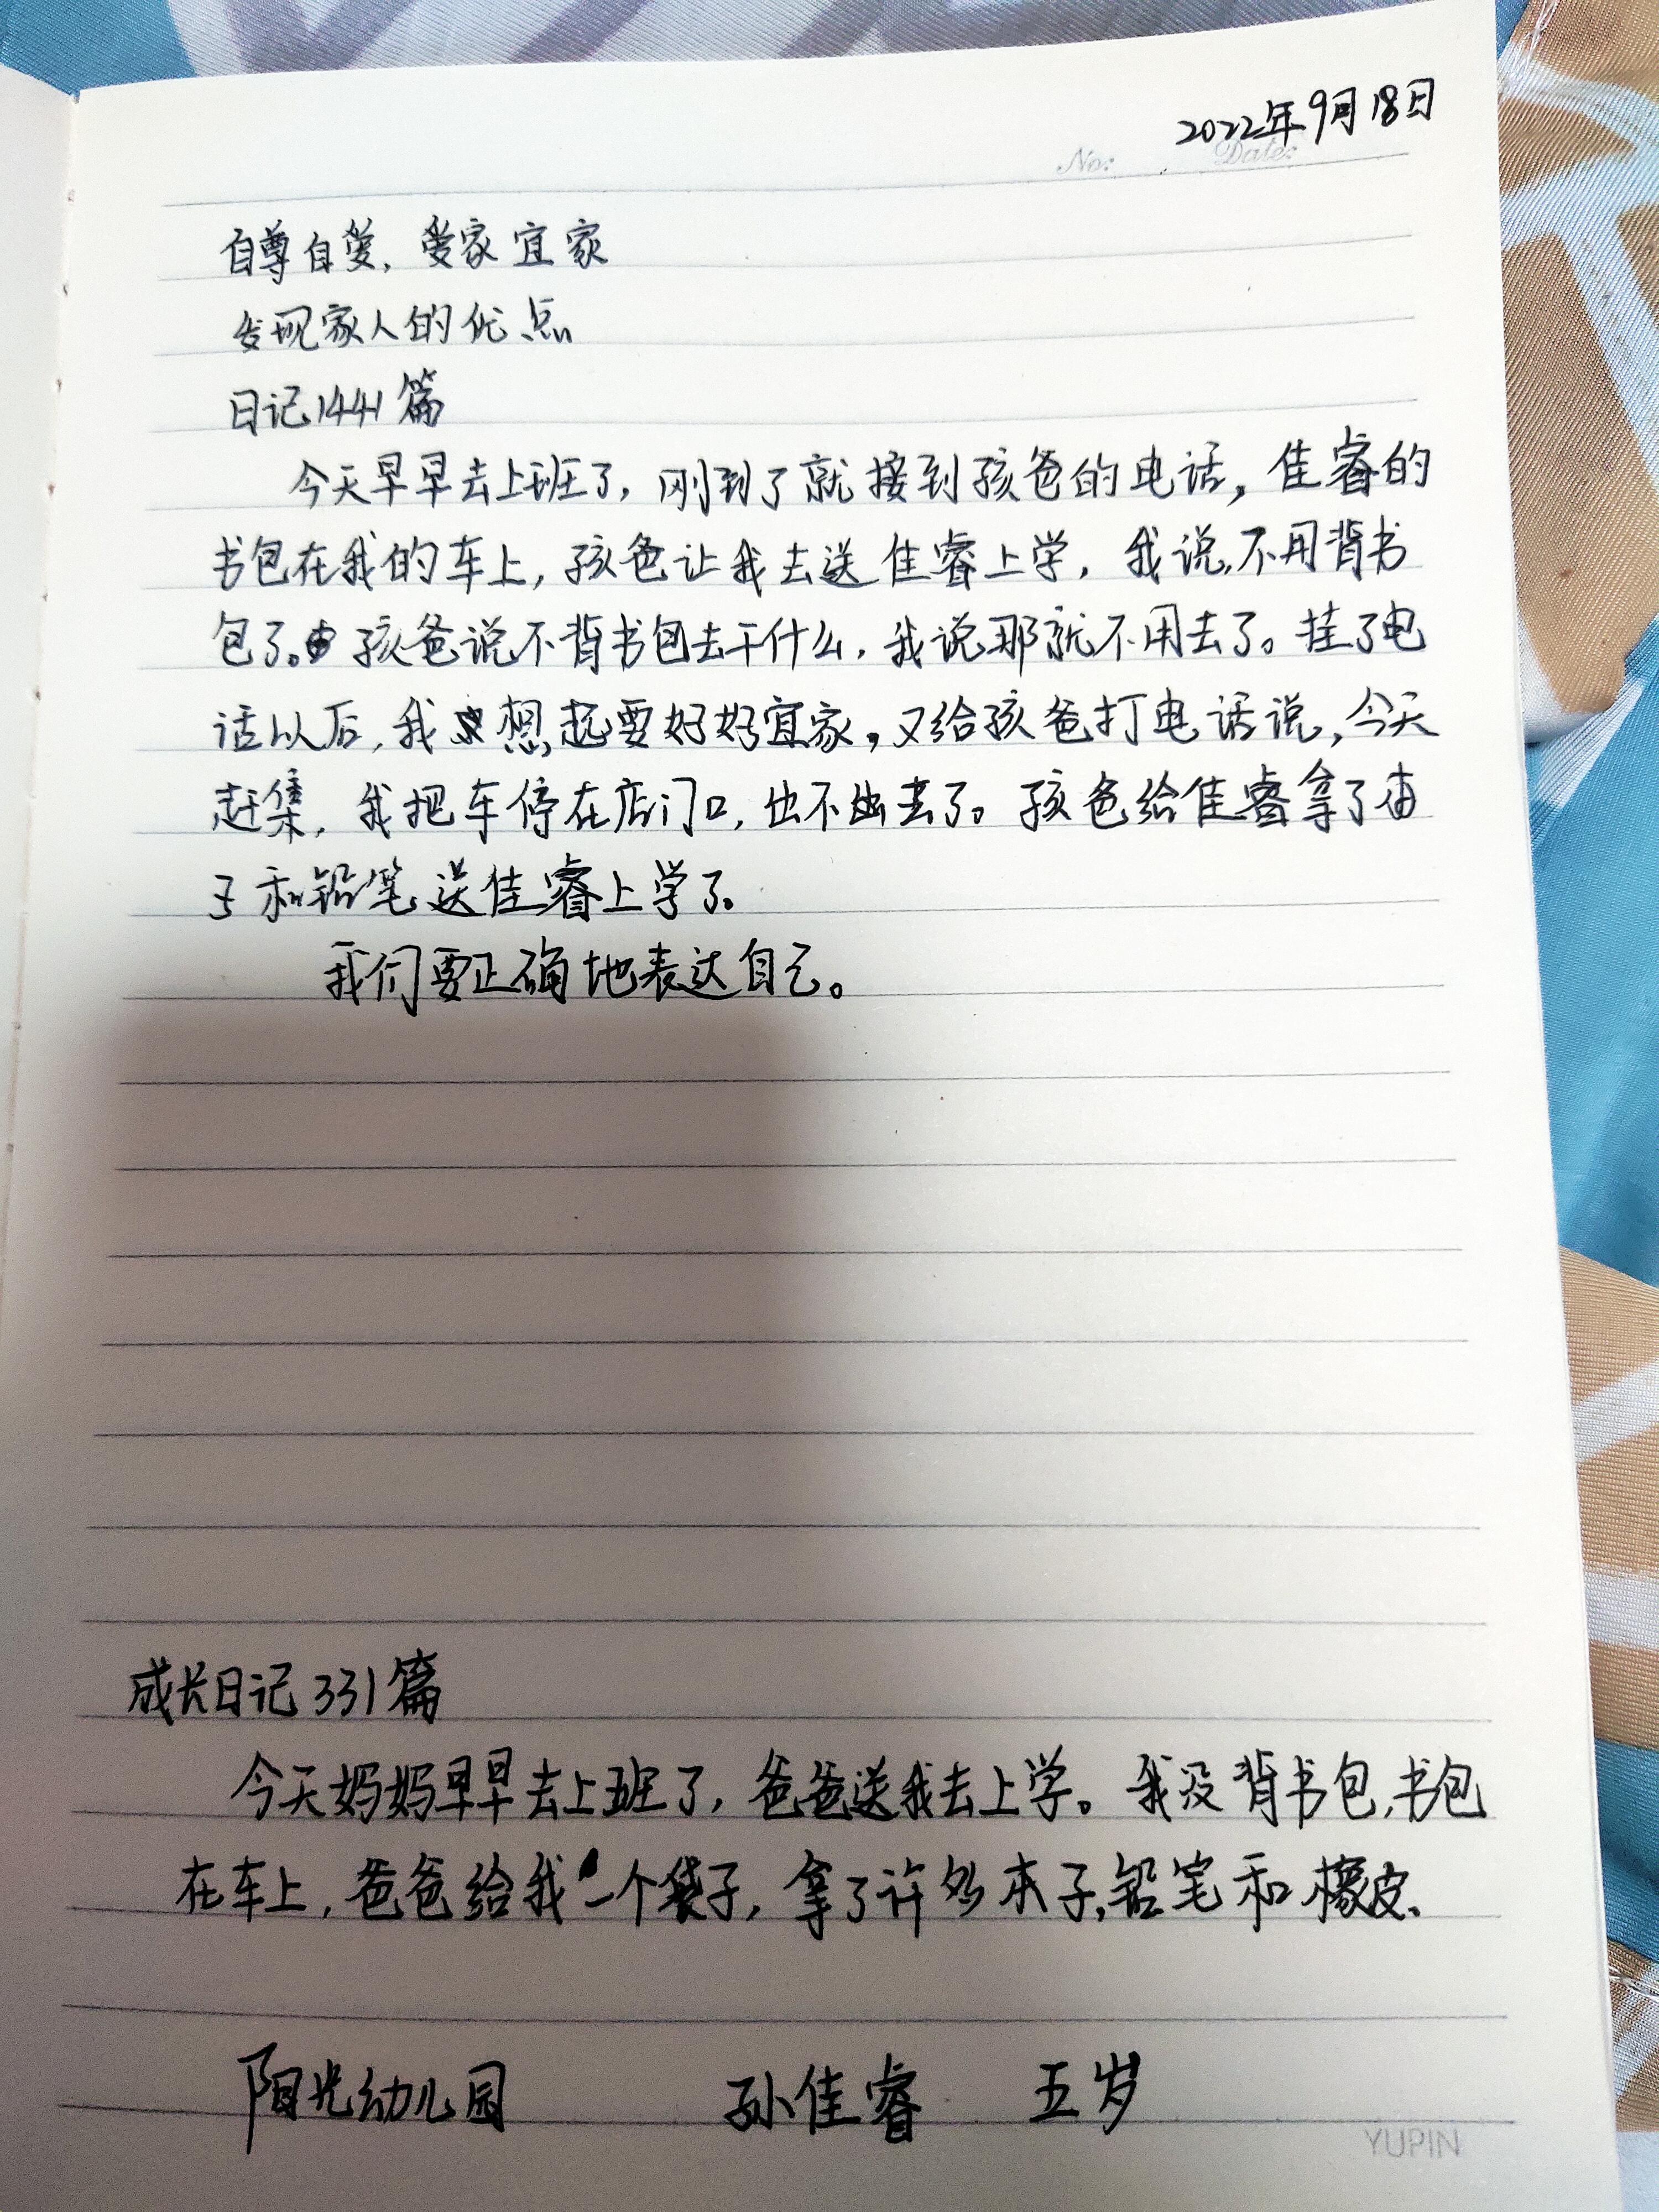 2022年9月18日
No: Date:
自尊自爱,爱家宜家
发现家人的优点
日记1441篇
今天早早去上班了,刚到了就接到孩爸的电话,佳睿的
书包在我的车上,孩爸让我去送佳睿上学,我说,不用背书
包了。孩爸说不背书包去干什么,我说那就不用去了。挂了电
话以后,我想起要好好宜家,又给孩爸打电话说,今天
赶集,我把车停在店门口,出不去了。孩爸给佳睿拿了本
子和铅笔送佳睿上学了。
我们要正确地表达自己。
成长日记331篇
今天妈妈早早去上班了,爸爸送我去上学。我没背书包,书包
在车上,爸爸给我一个袋子,拿了许多本子,铅笔和橡皮.
阳光幼儿园 孙佳睿 五岁
YUPIN